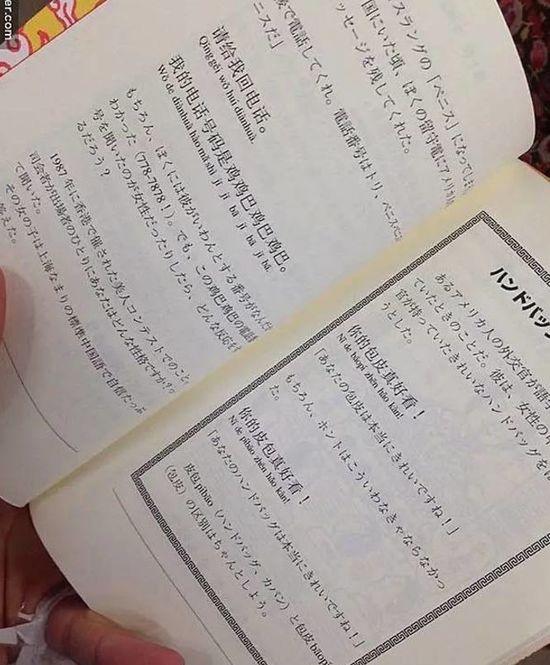 er.com
スラングの「ペニス」になってしま
国にいた頃、ぼくの留守電にアメリカ
ッセージを残してくれた。
で電話してくれ。電話番号はトリ、ペニス
ニスだ」
请给我回电话。
Qǐng gěi wǒ huí diànhuà.
我的电话号码是鸡鸡巴鸡巴鸡巴。
Wǒ de diànhuà hàomǎ shì jī jī bā jī bā jī bā.
もちろん、ぼくには彼がいわんとする番号がなんだ
わかった（778-7878！）。でも、この鸡巴鸡巴の電話
号を聞いたのが女性だったりしたら、どんな反応を
るだろう？
1987年に香港で催された美人コンテストでのこと
司会者が出場者のひとりにあなたはどんな性格ですか？
て聞いた。
その女の子は上海なまりの標準中国語で自信たっぷ
答えた。
ハンドバッグ
あるアメリカ人の外交官が語
ていたときのことだ。彼は、女性の
官が持っていたきれいなハンドバッグを
うとした。
你的包皮真好看！
Nǐ de bāopí zhēn hǎo kàn!
「あなたの包皮は本当にきれいですね！」
もちろん、ホントはこういわなきゃならなかっ
た。
你的皮包真好看！
Nǐ de píbāo zhēn hǎo kàn!
「あなたのハンドバッグは本当にきれいですね！」
皮包 píbāo（ハンドバッグ、カバン）と包皮 bāopí
（包皮）の区別はちゃんとしよう。